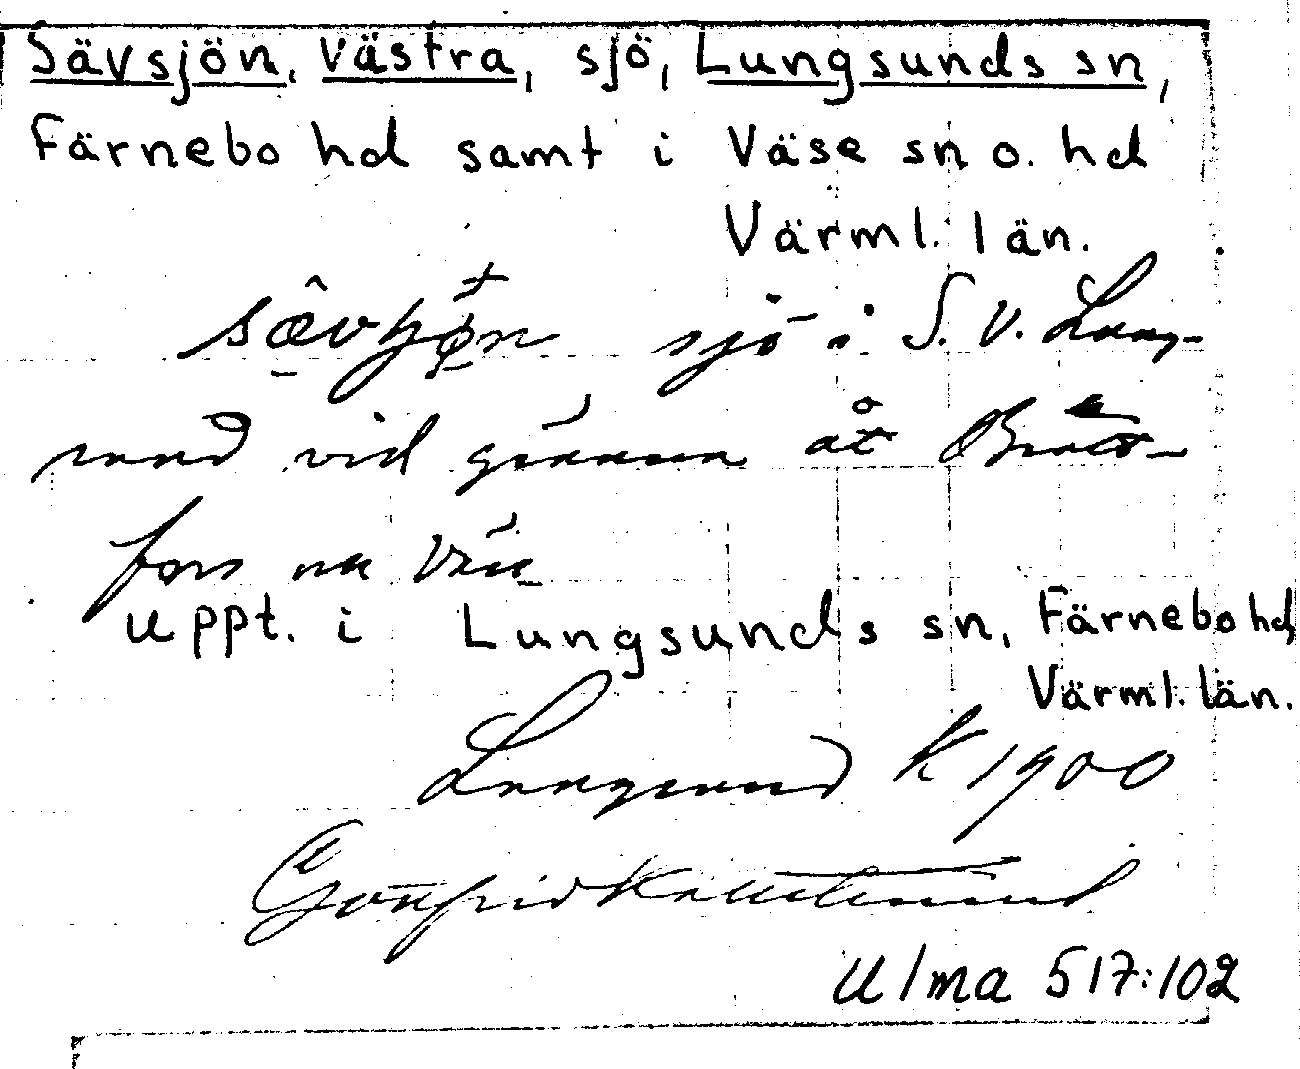 Sävsjön, västra, sjö, Lungsunds sn,
Färnebo hd samt i Väse sn o. hd
Värml. län.
sjö i S. V. Lung-
sund vid gränsen åt Bratt-
fors
uppt. i Lungsunds sn, Färnebo hd
Värml. län.
Lungsund K 1900
Gottfrid Kallstenius
Ulma 517:102